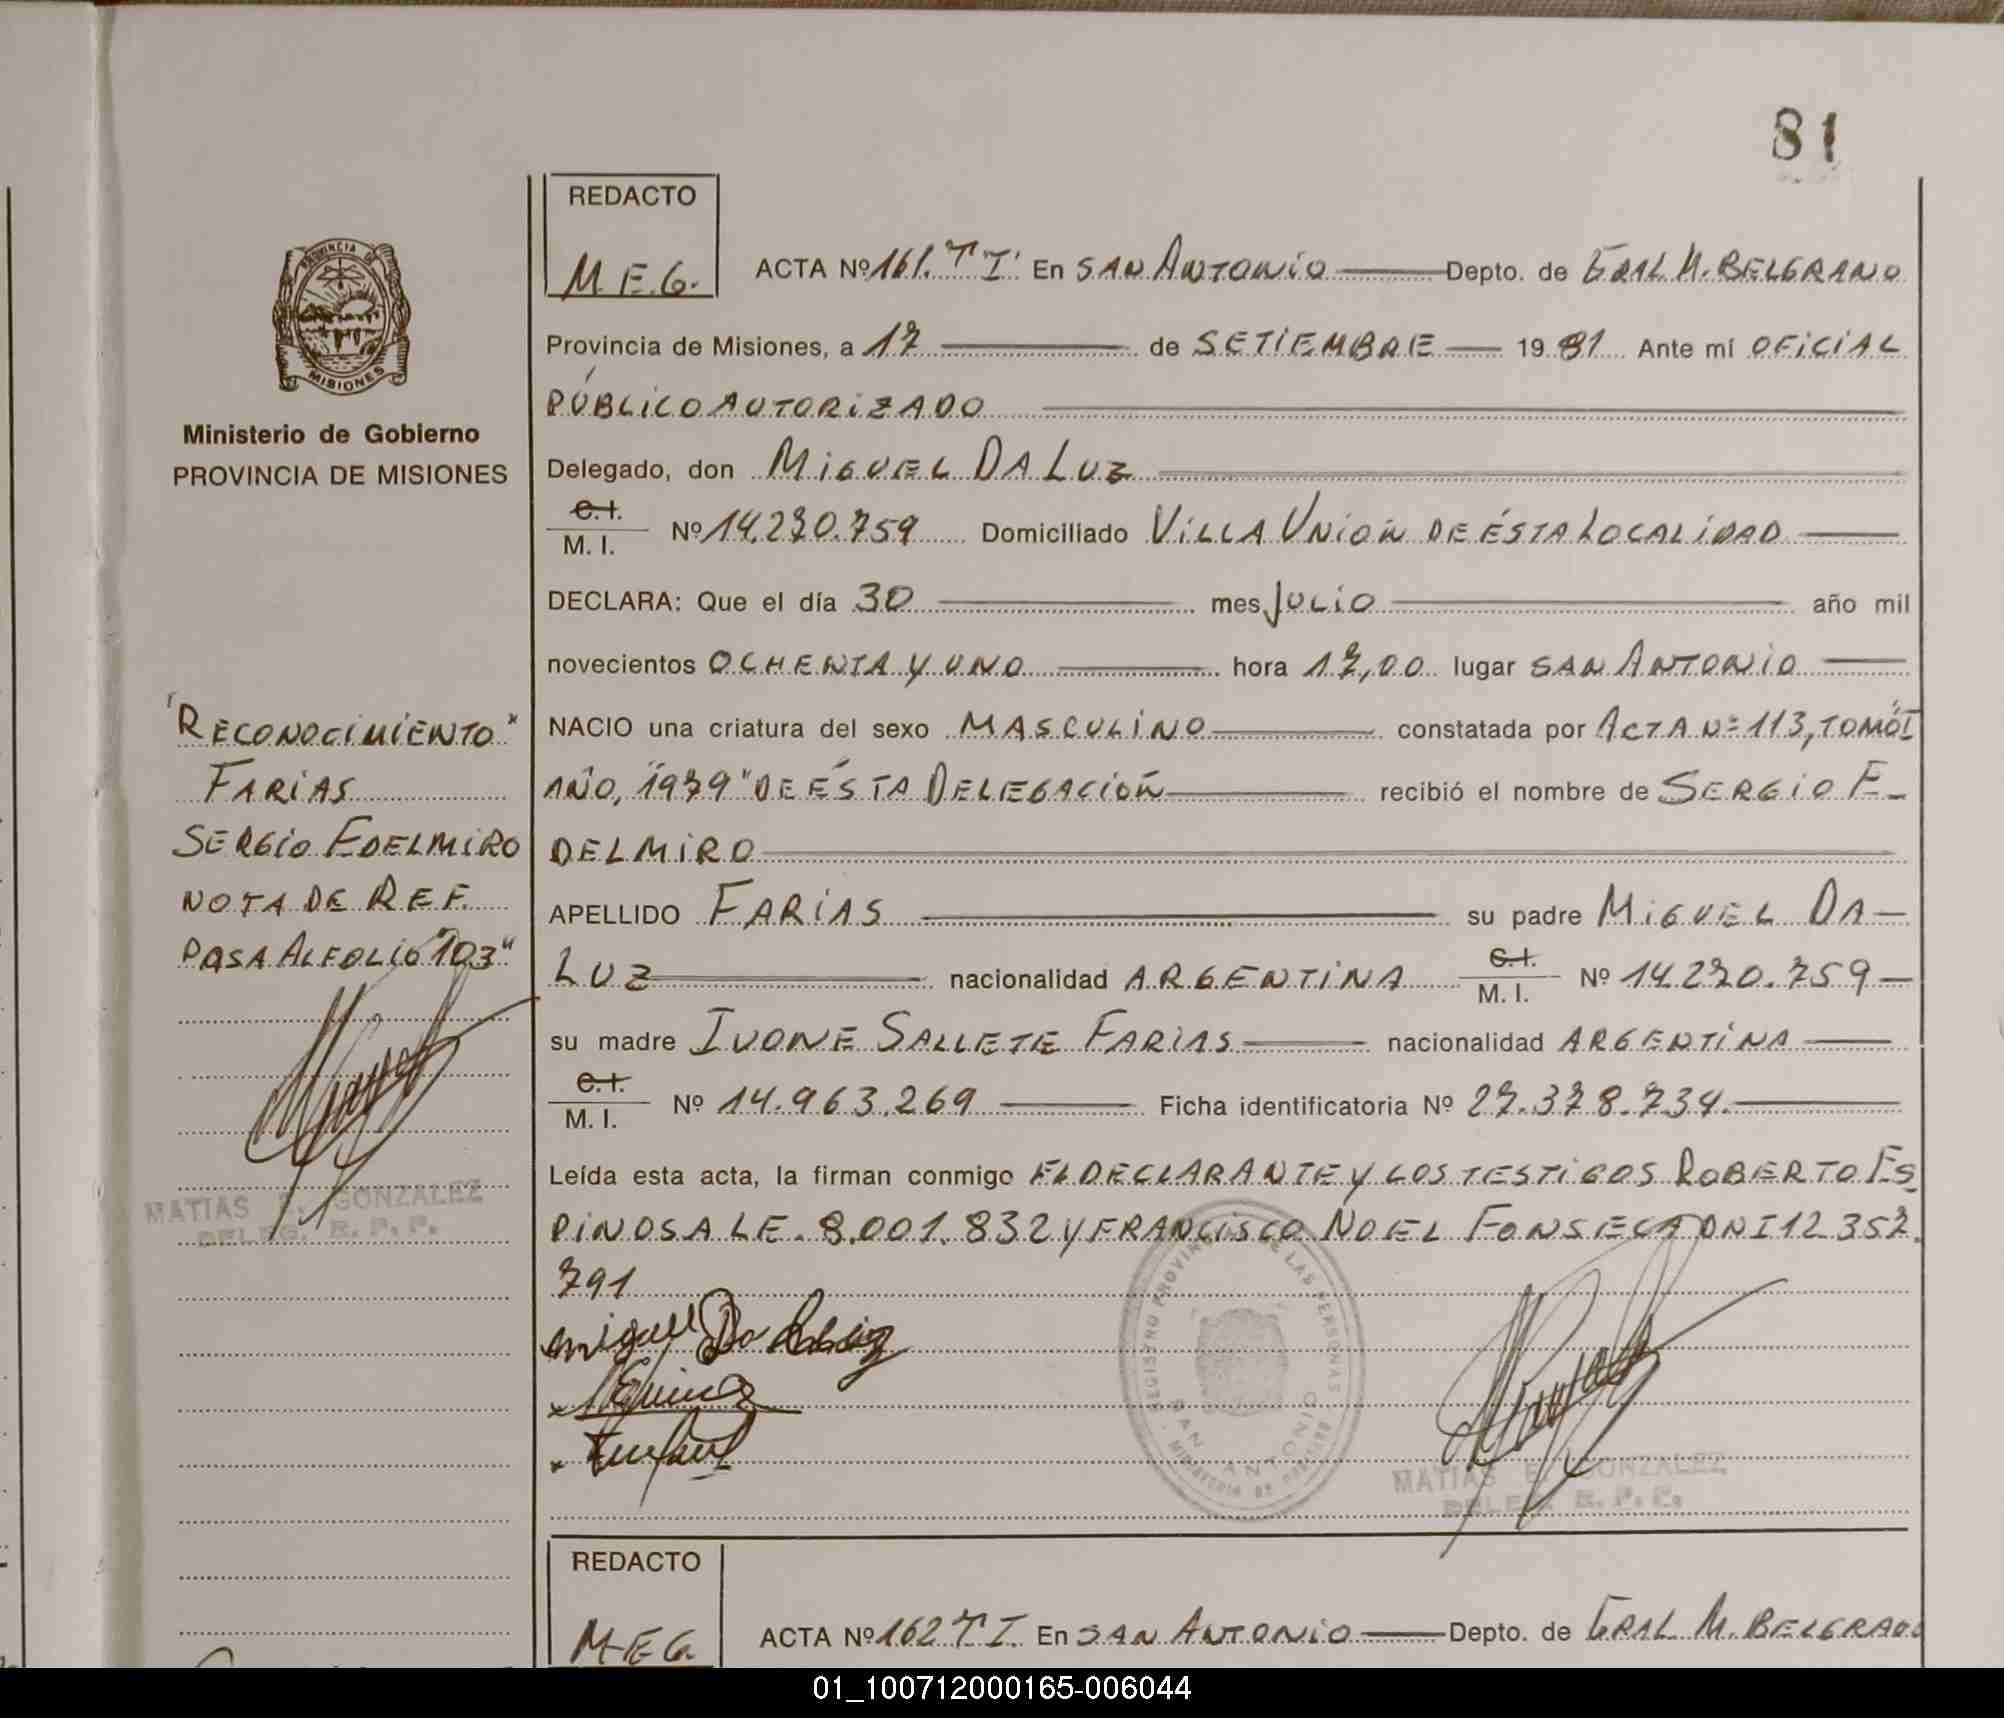 81
REDACTO
M.E.G.
ACTA Nº 161. T I. En SAN ANTONIO Depto. de GRAL M. BELGRANO
Provincia de Misiones, a 17 de SETIEMBRE 1981 Ante mí OFICIAL
PÚBLICO AUTORIZADO
Delegado, don MIGUEL DA LUZ
C.I. M. I. Nº 14.270.759 Domiciliado VILLA UNIÓN DE ÉSTA LOCALIDAD
DECLARA: Que el día 30 mes JULIO año mil
novecientos OCHENTA Y UNO hora 17,00 lugar SAN ANTONIO
NACIO una criatura del sexo MASCULINO constatada por ACTA Nº 113, TOMO "I
AÑO, "1979" DE ÉSTA DELEGACIÓN recibió el nombre de SERGIO E-
DELMIRO
APELLIDO FARIAS su padre MIGUEL DA
LUZ nacionalidad ARGENTINA C.I. M. I. Nº 14.270.759
su madre IVONE SALLETE FARIAS nacionalidad ARGENTINA
C.I. M. I. Nº 14.963.269 Ficha identificatoria Nº 27.378.734.
Leída esta acta, la firman conmigo EL DECLARANTE Y LOS TESTIGOS ROBERTO ES
PINOSA LE. 8.001.832 Y FRANCISCO NOEL FONSECA DNI 12.357.
791
miguel Da Luz
REGISTRO PROVINCIAL DE LAS PERSONAS
SAN ANTONIO
MINISTERIO DE GOBIERNO
MATIAS E. GONZALEZ
DELEG. R. P. P.
PROVINCIA DE
MISIONES
Ministerio de Gobierno
PROVINCIA DE MISIONES
"RECONOCIMIENTO"
FARIAS
SERGIO EDELMIRO
NOTA DE REF.
PASA AL FOLIO "103"
MATIAS E. GONZALEZ
DELEG. R. P. P.
REDACTO
M.E.G.
ACTA Nº 162 T I. En SAN ANTONIO Depto. de GRAL M. BELGRANO
01_100712000165-006044